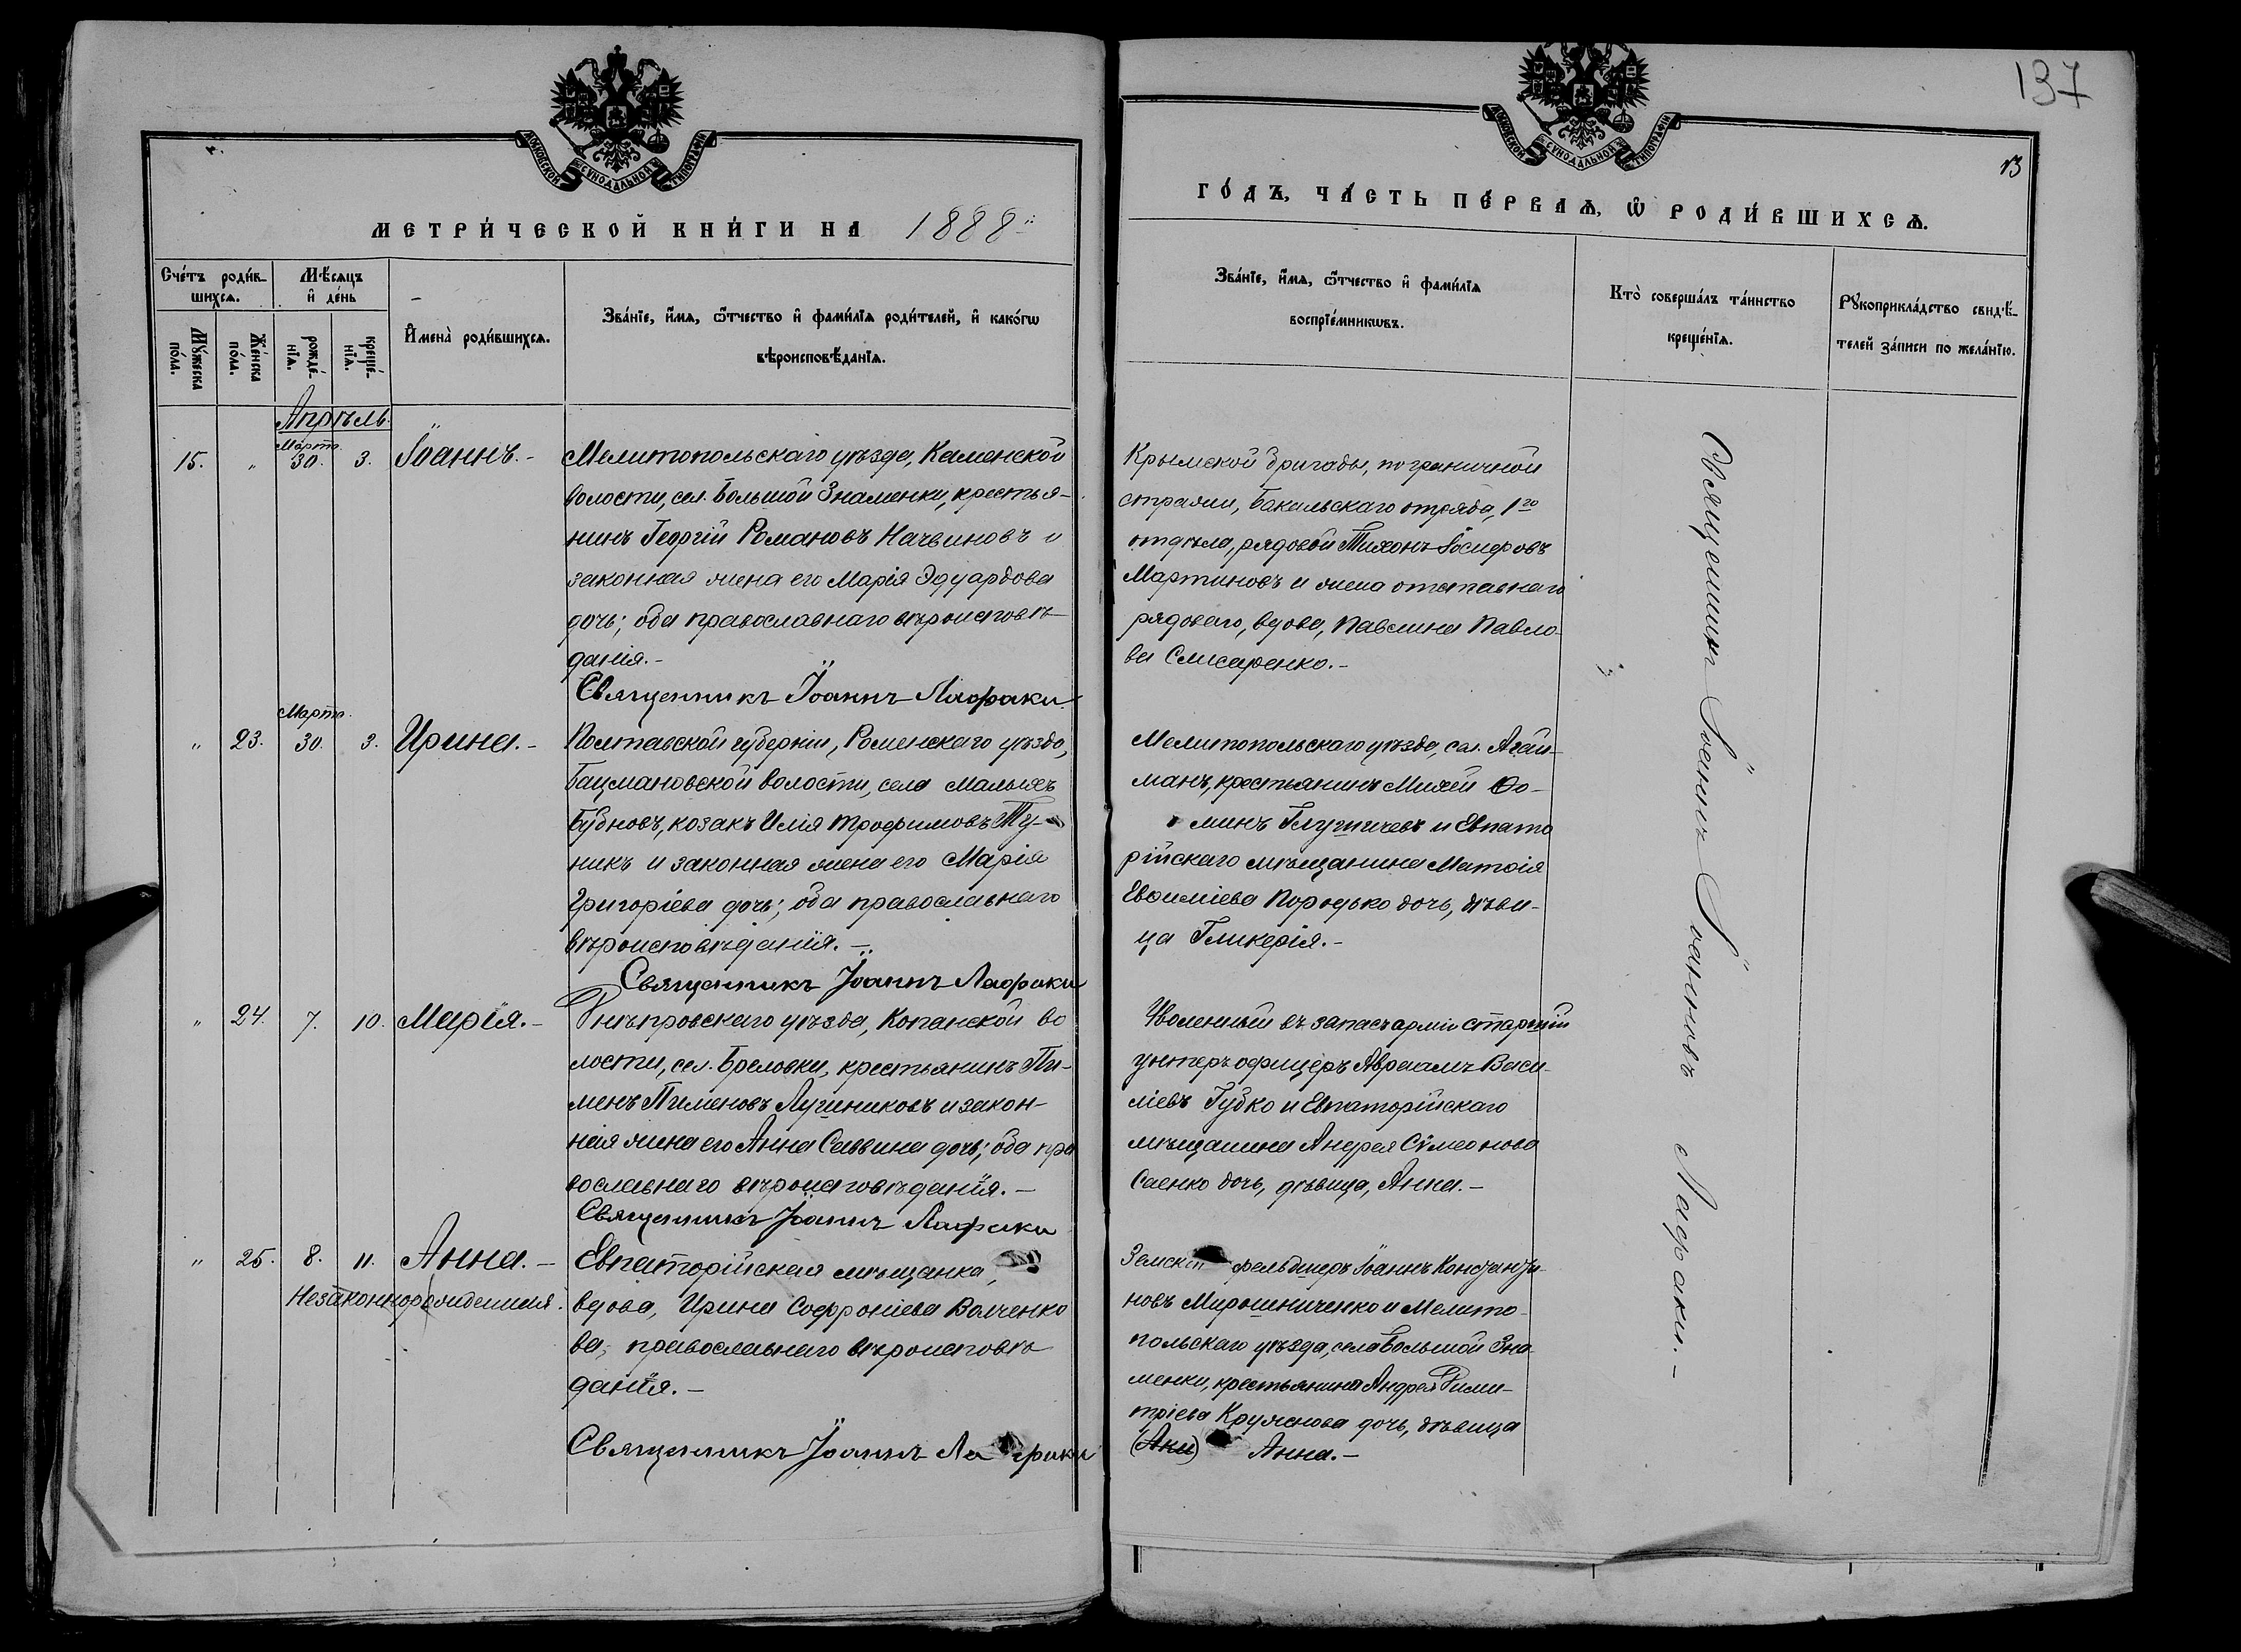 137
13
МОСКОВСКОЙ СѴНОДАЛЬНОЙ ТИПОГРАФІИ
МОСКОВСКОЙ СѴНОДАЛЬНОЙ ТИПОГРАФІИ
МЕТРИ́ЧЕСКОЙ КНИ́ГИ НА 1888
ГО́ДЪ, ЧА́СТЬ ПЕ́РВАѦ, Ѡ РОДИ́ВШИХСѦ.
Сче́тъ роди́в-
шихсѧ.
Мѣ́сѧцъ
и҆ де́нь
Му́жеска
по́ла.
Же́нска
по́ла.
рожде́-
нїѧ.
креще́-
нїѧ.
И҆мена̀ роди́вшихсѧ.
Зва́нїе, и҆́мѧ, ѻ҆́тчество и҆ фами́лїѧ роди́телей, и҆ како́гѡ
вѣроисповѣ́данїѧ.
Зва́нїе, и҆́мѧ, ѻ҆́тчество и҆ фами́лїѧ
воспрїе́мникѡвъ.
Кто̀ соверша́лъ та́инство
креще́нїѧ.
Рꙋкоприкла́дство свидѣ́-
телей за́писи по жела́нїю.
Апрѣль
Марта
15. " 30. 3. Іоаннъ.-
Мелитопольскаго уѣзда, Каменской
волости, сел. Большой Знаменки, крестья-
нинъ Георгій Романовъ Начвиновъ и
законная жена его Марія Эдуардова
дочь; оба православнаго вѣроисповѣ-
данія.-
Священникъ Іоаннъ Лафаки
Крымской бригады, пограничной
стражи, Бакальскаго отряда, 1го
отдѣла, рядовой Тихонъ Іосифовъ
Мартиновъ и жена отставнаго
рядоваго, вдова, Павлина Павло-
ва Слисаренко.-
Марта.
" 23. 30. 3. Ирина.-
Полтавской губерніи, Роменскаго уѣзда,
Бацмановской волости, села Малыхъ
Бубновъ, козакъ Илія Трофимовъ Ту-
никъ и законная жена его Марія
Григоріева дочь; оба православнаго
вѣроисповѣданія.-
Священникъ Іоаннъ Лафаки
Мелитопольскаго уѣзда, сел. Агай-
манъ, крестьянинъ Михей Ѳо-
минъ и Евпато
рійскаго мѣщанина Матѳія
Евѳиміева Породько дочь, дѣви-
ца Гликерія.-
" 24. 7. 10. Марія.-
Днѣпровскаго уѣзда, Копанской во
лости, сел. Бреловки, крестьянинъ Пи-
менъ Пименовъ Лушниковъ и закон-
ная жена его Анна Саввина дочь; оба пра
вославнаго вѣроисповѣданія.-
Священникъ Іоаннъ Лафаки
Уволенный въ запасъ арміи старшій
унтеръ офицеръ Авраамъ Васи-
ліевъ Губко и Евпаторійскаго
мѣщанина Андрея Сѵмеонова
Саенко дочь, дѣвица, Анна.-
" 25. 8. 11. Анна.-
Незаконнорожденная.
Евпаторійская мѣщанка,
вдова, Ирина Софроніева Волченко
ва, православнаго вѣроисповѣ
данія.-
Священникъ Іоаннъ Лафаки
Земскій фельдшеръ Іоаннъ Константи-
новъ Мирошниченко и Мелито-
польскаго уѣзда, села Большой Зна-
менки, крестьянина Андрея Дими-
тріева Кружнова дочь, дѣвица
(Аки) Анна.-
Священникъ Іоаннъ Іоанновъ Лафаки.-